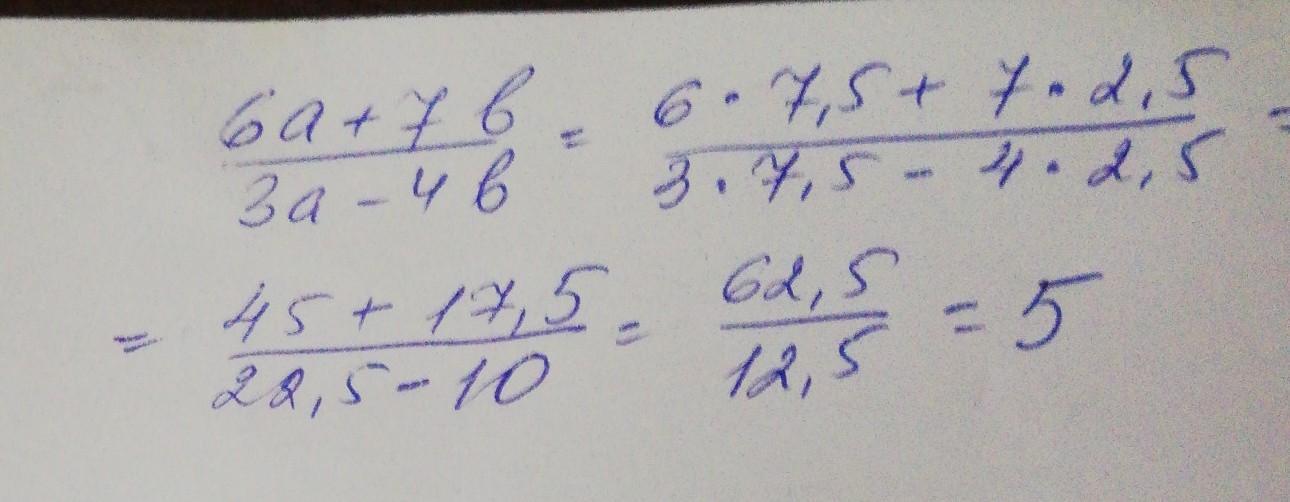 (6a + 7b)/(3a - 4b) = (6 · 7,5 + 7 · 2,5)/(3 · 7,5 - 4 · 2,5) =
= (45 + 17,5)/(22,5 - 10) = 62,5/12,5 = 5